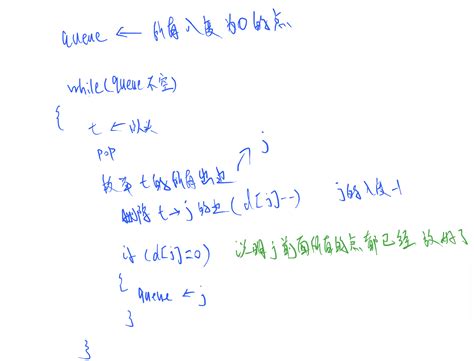 queue ← 所有入度为0的点
while(queue不空)
{
t ← 队头
pop
枚举t的所有出边 → j
删除 t→j的边 (d[j]--) j的入度-1
if (d[j]=0) 说明j前面所有的点都已经放好了
{
queue ← j
}
}